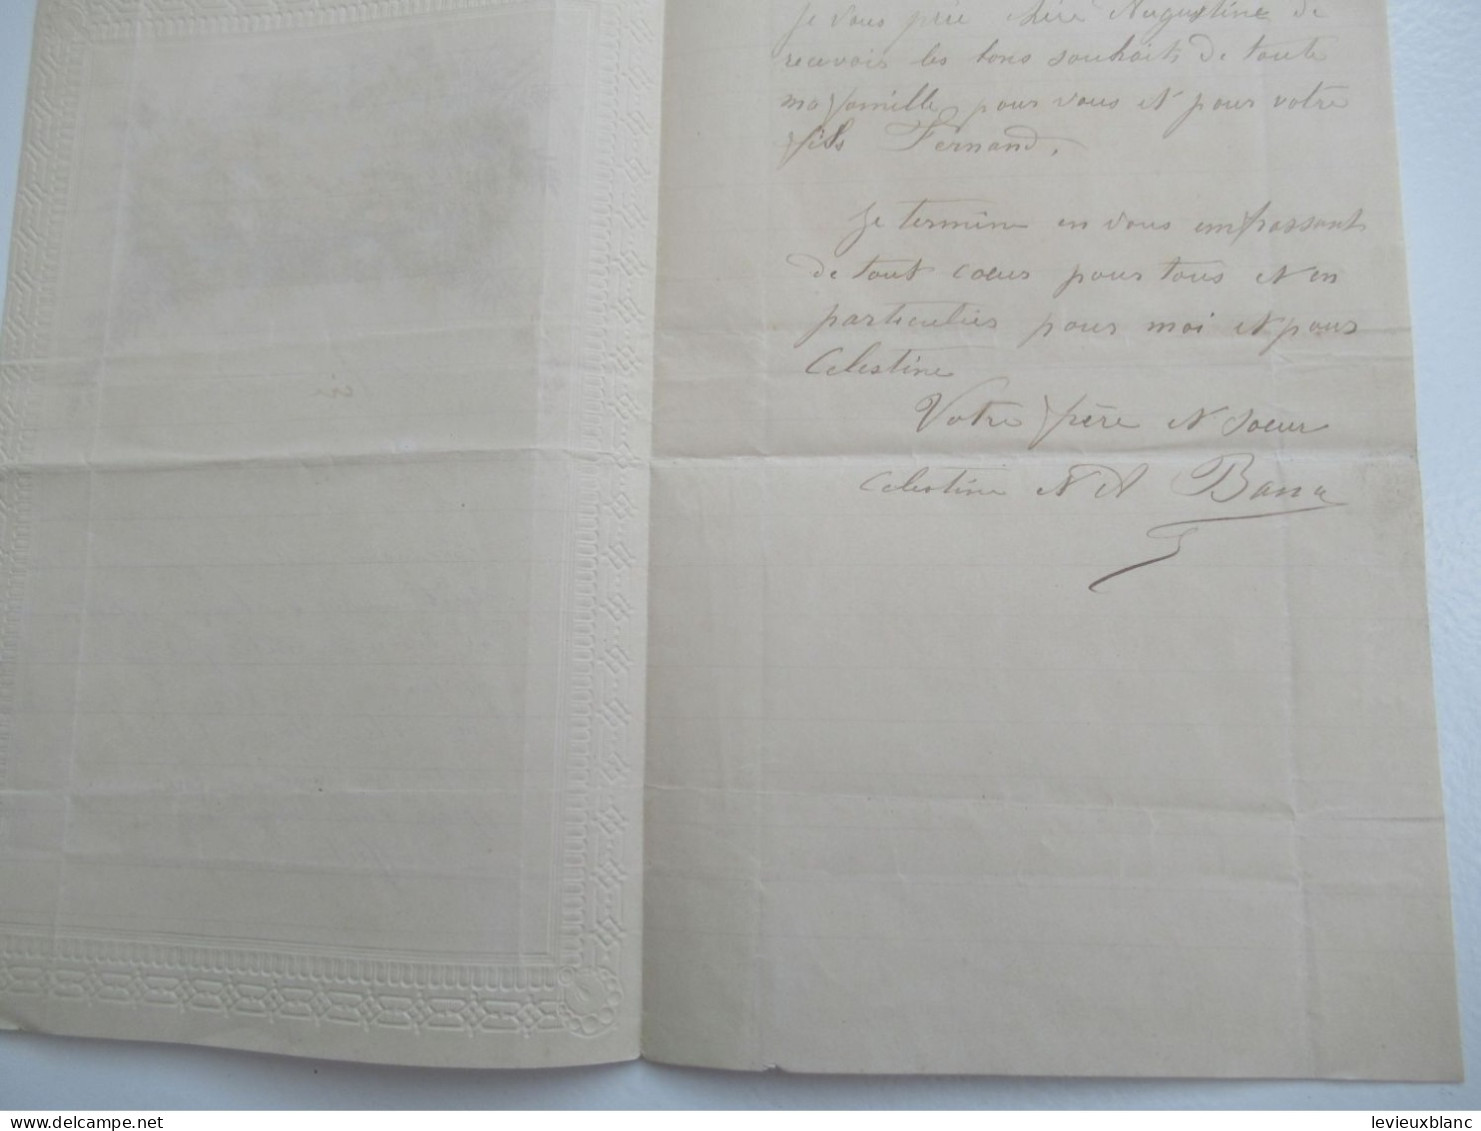 Je vous prie chère Augustine de
recevoir les bons souhaits de toute
ma famille, pour vous et pour votre
fils Fernand.
Je termine en vous embrassant
de tout coeur pour tous et en
particulier pour moi et pour
Celestine
Votre frère et Soeur
Celestine et A
levieuxblanc